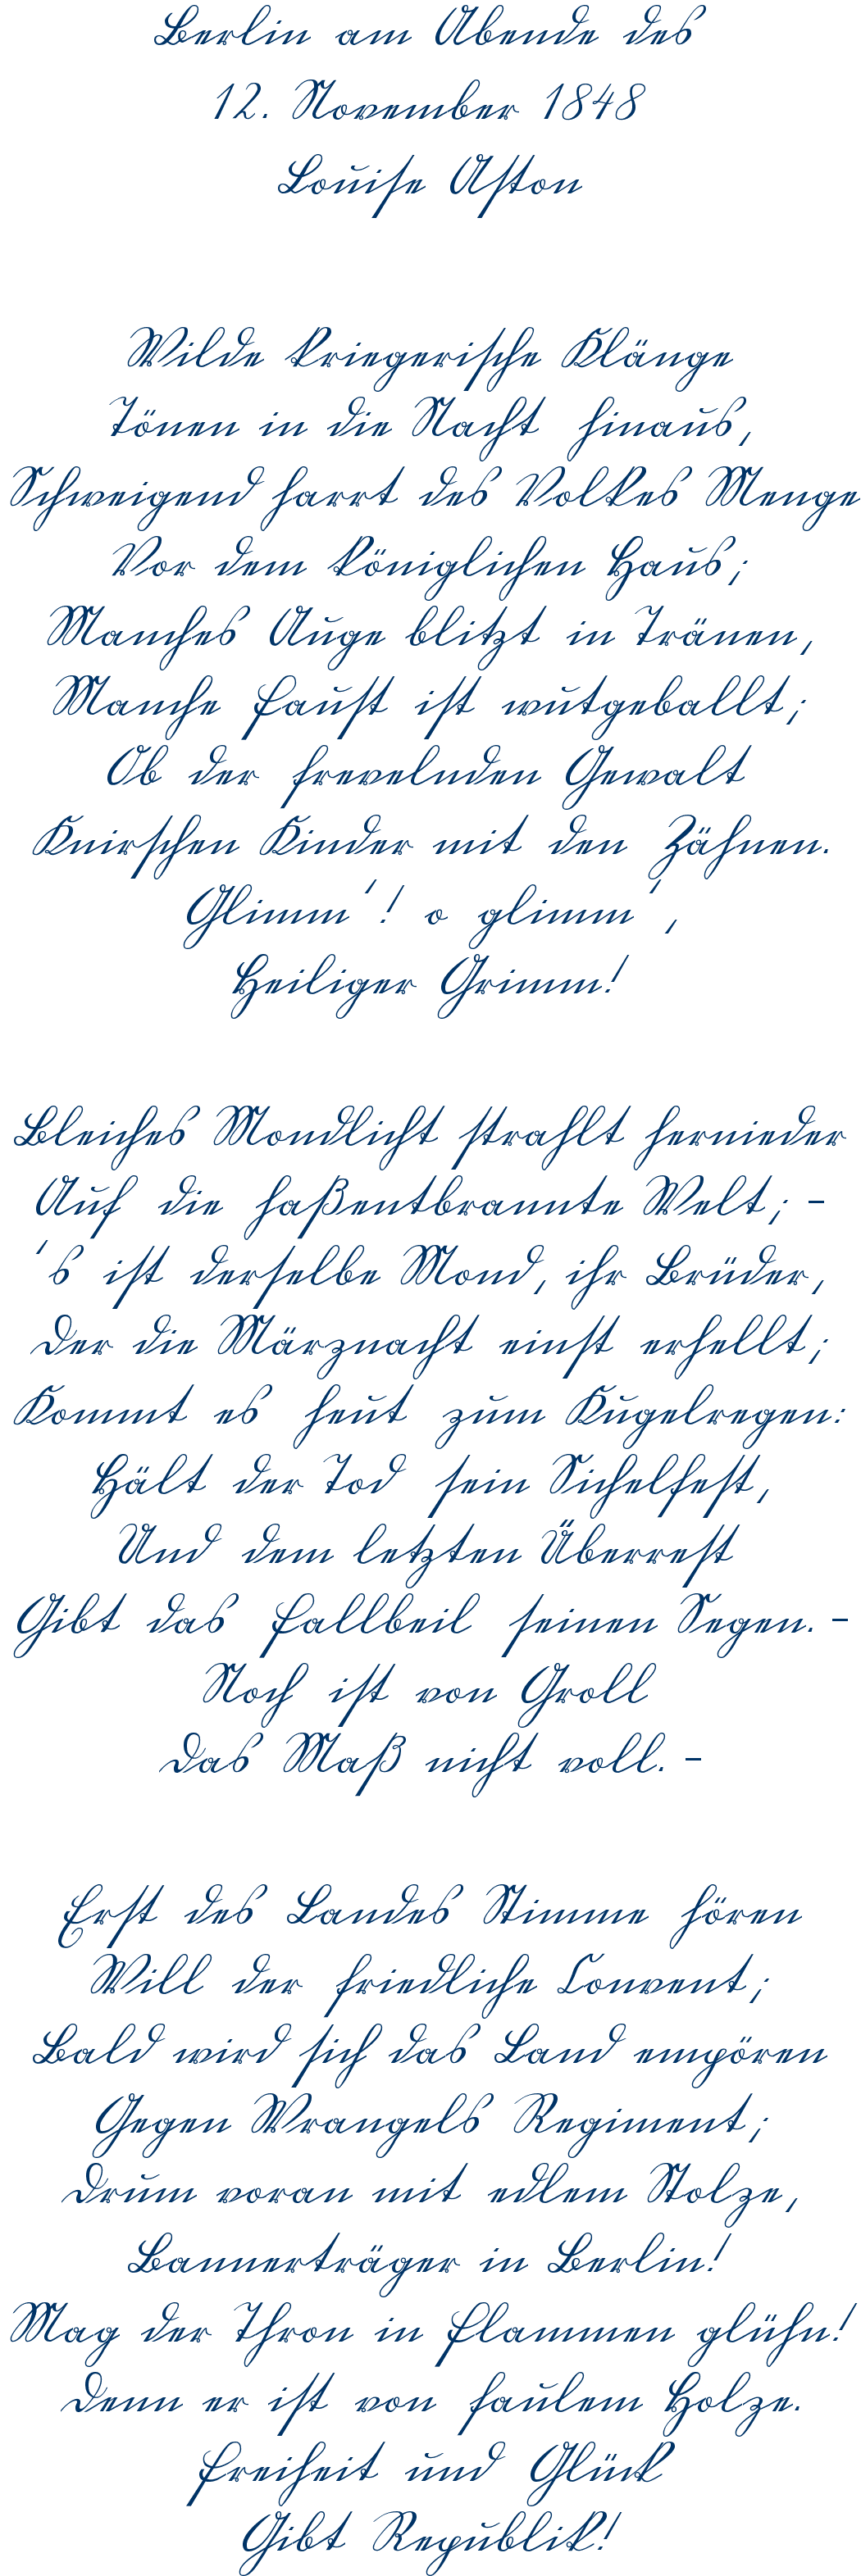 Berlin am Abende des
12. November 1848
Louise Aston
Wilde kriegerische Klänge
Tönen in die Nacht hinaus,
Schweigend harrt des Volkes Menge
Vor dem königlichen Haus;
Manches Auge blitzt in Tränen,
Manche Faust ist wutgeballt;
Ob der frevelnden Gewalt
Knirschen Kinder mit den Zähnen.
Glimm'! o glimm',
Heiliger Grimm!
Bleiches Mondlicht strahlt hernieder
Auf die haßentbrannte Welt; –
's ist derselbe Mond, ihr Brüder,
Der die Märznacht einst erhellt;
Kommt es heut zum Kugelregen:
Hält der Tod sein Sichelfest,
Und dem letzten Überrest
Gibt das Fallbeil seinen Segen. –
Noch ist von Groll
Das Maß nicht voll. –
Erst des Landes Stimme hören
Will der friedliche Convent;
Bald wird sich das Land empören
Gegen Wrangels Regiment;
Drum voran mit edlem Stolze,
Bannerträger in Berlin!
Mag der Thron in Flammen glühn!
Denn er ist von faulem Holze.
Freiheit und Glück
Gibt Republik!